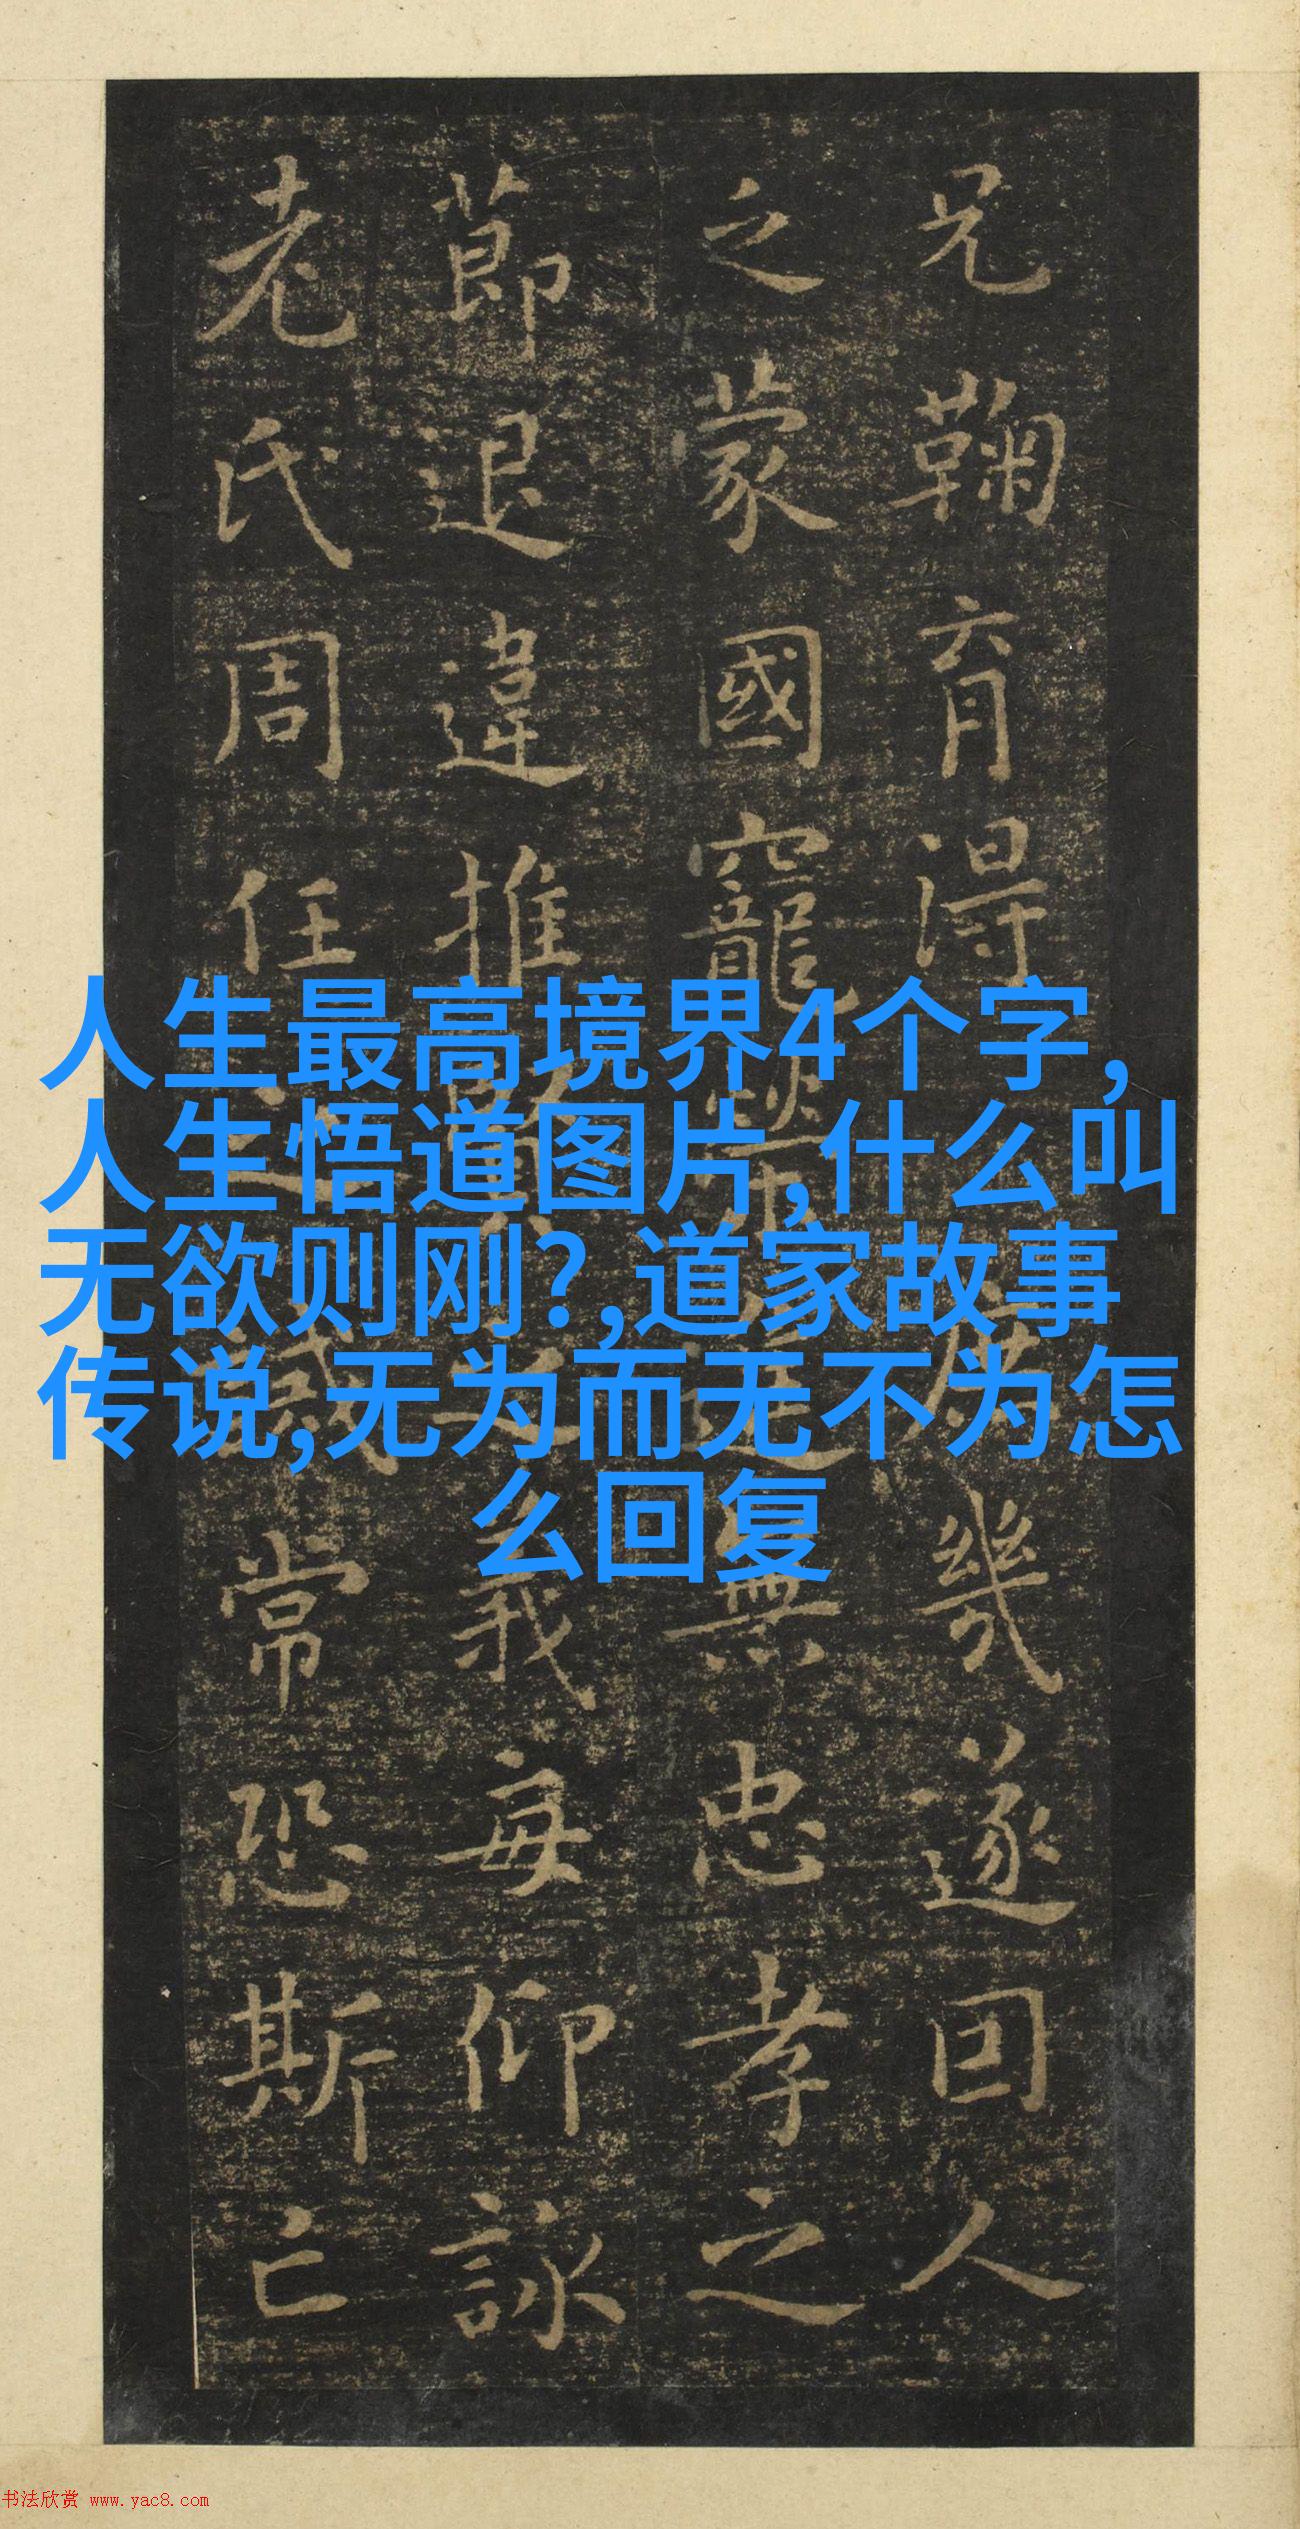 兄鞠育得庶幾遂因人
之蒙國寵榮進無忠孝之
莭退違推賢之義每仰詠
老氏周任之誡常恐斯亡
人生最高境界4个字,
人生悟道图片,什么叫
无欲则刚?,道家故事
传说,无为而无不为怎
么回复
书法欣赏 www.yac8.com